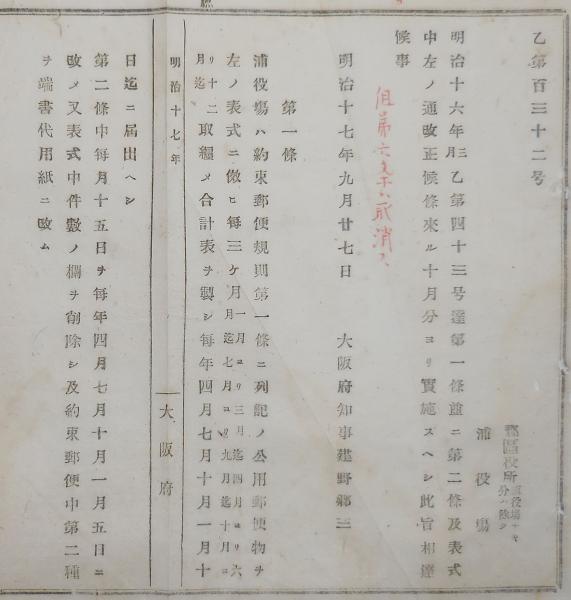 乙第百三十二号
郡區役所
浦役塲
明治十六年三月乙第四十三号達第一條並ニ第二條及表式
中左ノ通改正候條來ル十月分ヨリ實施スヘシ此旨相達
候事
明治十七年九月廿七日 大阪府知事建野鄕三
第一條
浦役塲ハ約束郵便規則第一條ニ列記ノ公用郵便物ヲ
左ノ表式ニ倣ヒ毎三ケ月一月ヨリ三月迄四月ヨリ六月迄七月ヨリ九月迄十月ヨリ十二月迄取纒メ合計表ヲ製シ毎年四月七月十月一月十
明治十七年 大阪府
日迄ニ届出ヘシ
第二條中毎月十五日ヲ毎年四月七月十月一月五日ニ
改メ又表式中件數ノ欄ヲ削除シ及約束郵便中第二種
ヲ端書代用紙ニ改ム